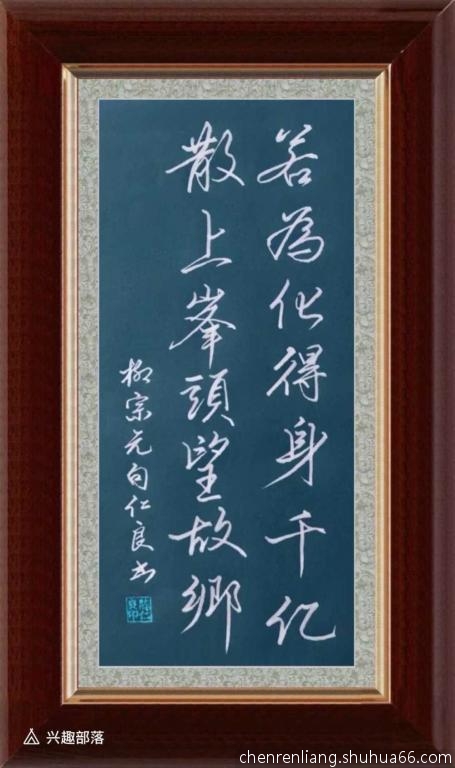 若為化得身千亿
散上峯頭望故鄉
柳宗元句仁良书
兴趣部落
chenrenliang.shuhua66.com